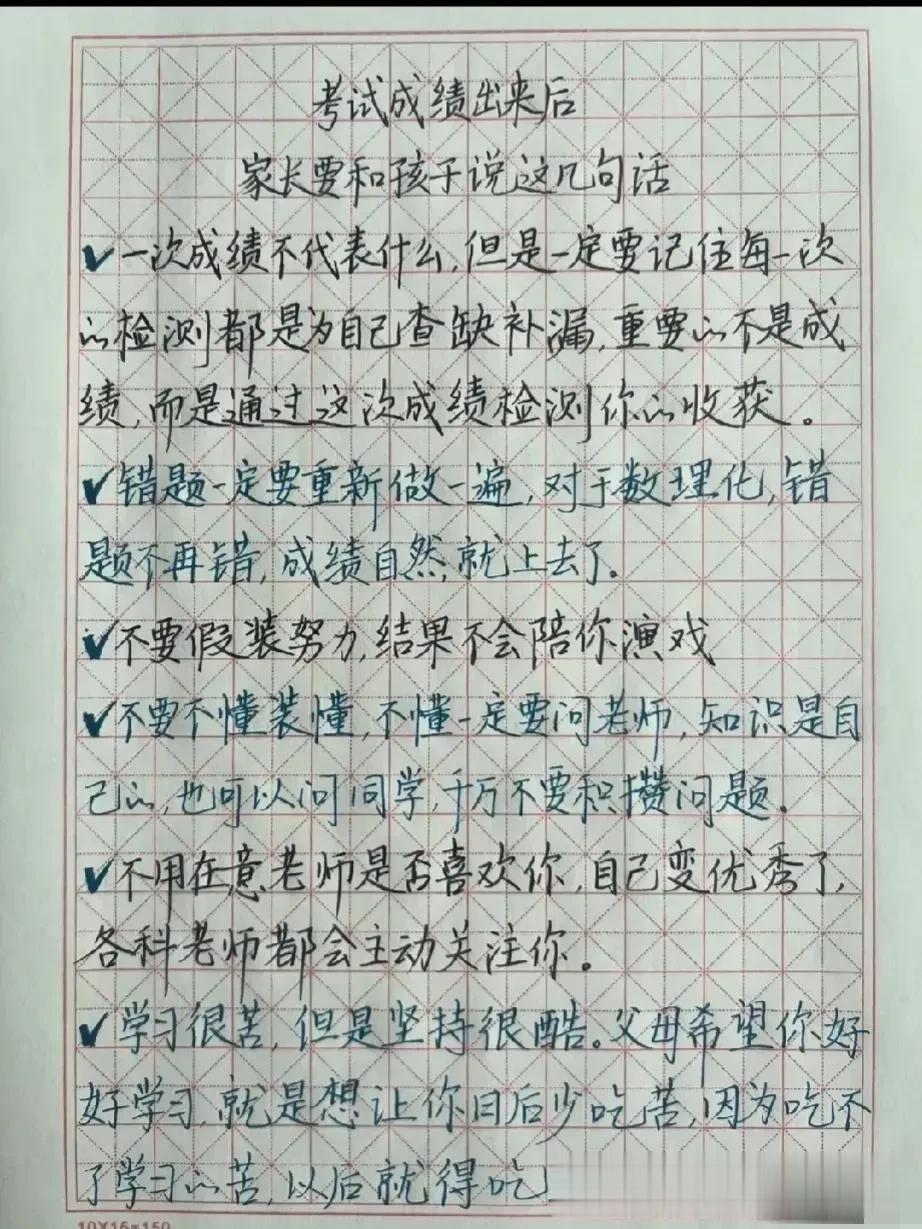 考试成绩出来后
家长要和孩子说这几句话
✔一次成绩不代表什么,但是一定要记住每一次
的检测都是为自己查缺补漏,重要的不是成
绩,而是通过这次成绩检测你的收获。
✔错题一定要重新做一遍,对于数理化,错
题不再错,成绩自然就上去了。
✔不要假装努力,结果不会陪你演戏
✔不要不懂装懂,不懂一定要问老师,知识是自
己的,也可以问同学,千万不要积攒问题。
✔不用在意老师是否喜欢你,自己变优秀了,
各科老师都会主动关注你。
✔学习很苦,但是坚持很酷。父母希望你好
好学习,就是想让你日后少吃苦,因为吃不
了学习的苦,以后就得吃
10X15=150